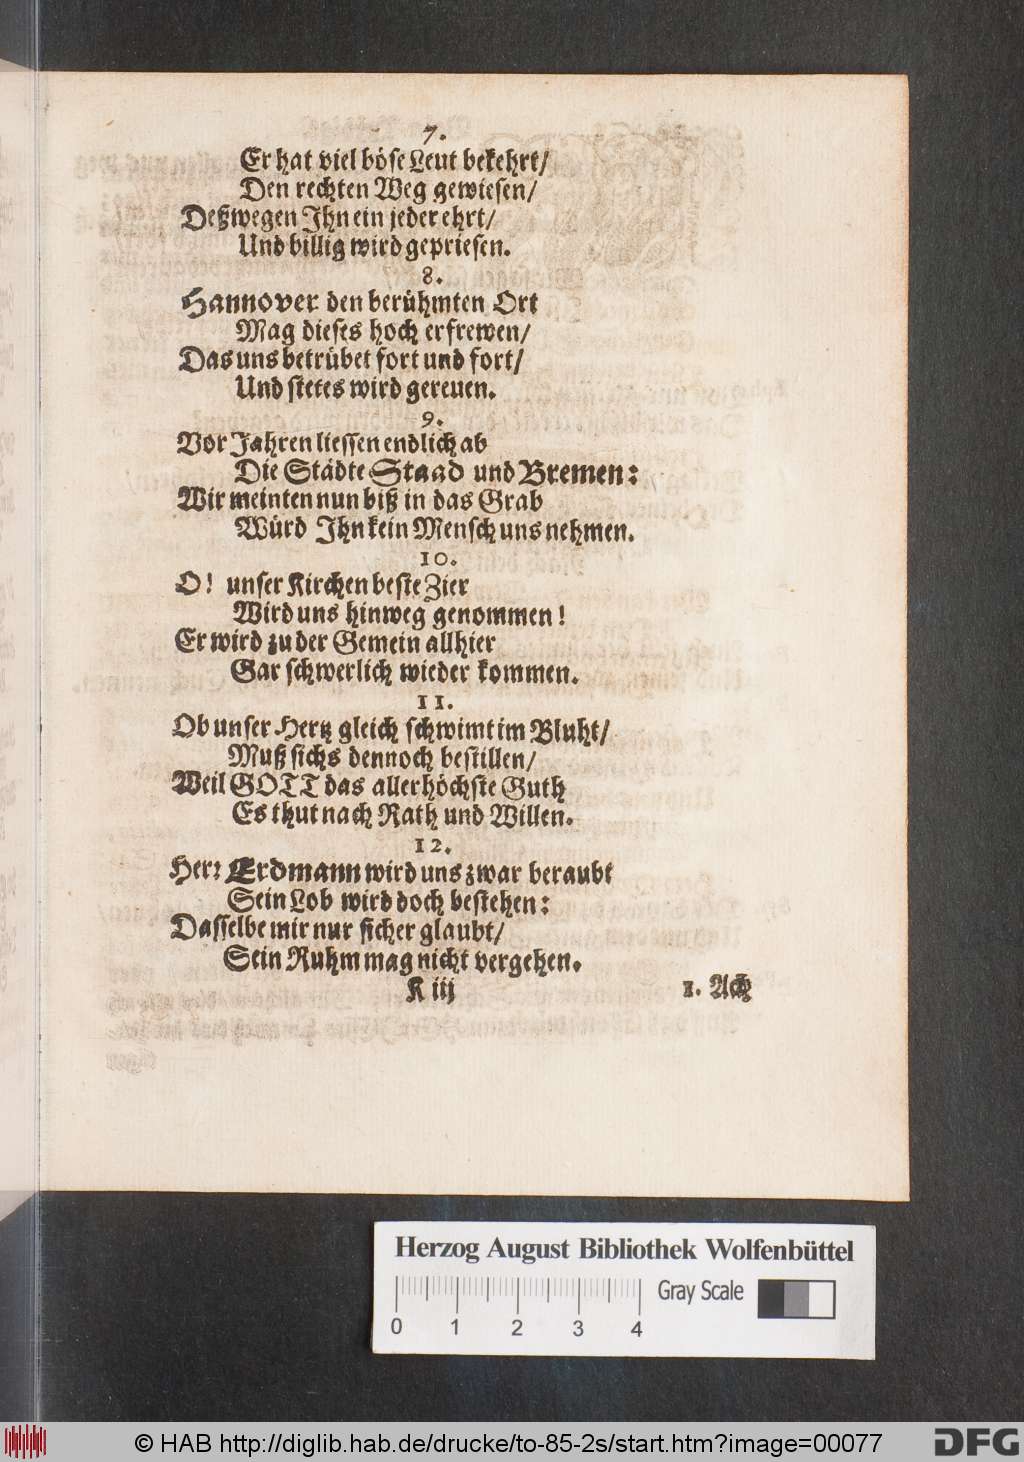 7.
Er hat viel böse Leut bekehrt/
Den rechten Weg gewiesen/
Deßwegen Ihn ein jeder ehrt/
Und billig wird gepriesen.
8.
Hannover den berühmten Ort
Mag dieses hoch erfrewen/
Das uns betrübet fort und fort/
Und stetes wird gereuen.
9.
Vor Jahren liessen endlich ab
Die Städte Staad und Bremen:
Wir meinten nun biß in das Grab
Würd Ihn kein Mensch uns nehmen.
10.
O! unser Kirchen beste Zier
Wird uns hinweg genommen!
Er wird zu der Gemein allhier
Gar schwerlich wieder kommen.
11.
Ob unser Hertz gleich schwimt im Bluht/
Muß sichs dennoch bestillen/
Weil GOTT das allerhöchste Guth
Es thut nach Rath und Willen.
12.
Herr Erdmann wird uns zwar beraubt
Sein Lob wird doch bestehen:
Dasselbe mir nur sicher glaubt/
Sein Ruhm mag nicht vergehen.
K iij 1. Ach
Herzog August Bibliothek Wolfenbüttel
Gray Scale
0 1 2 3 4
© HAB http://diglib.hab.de/drucke/to-85-2s/start.htm?image=00077
DFG